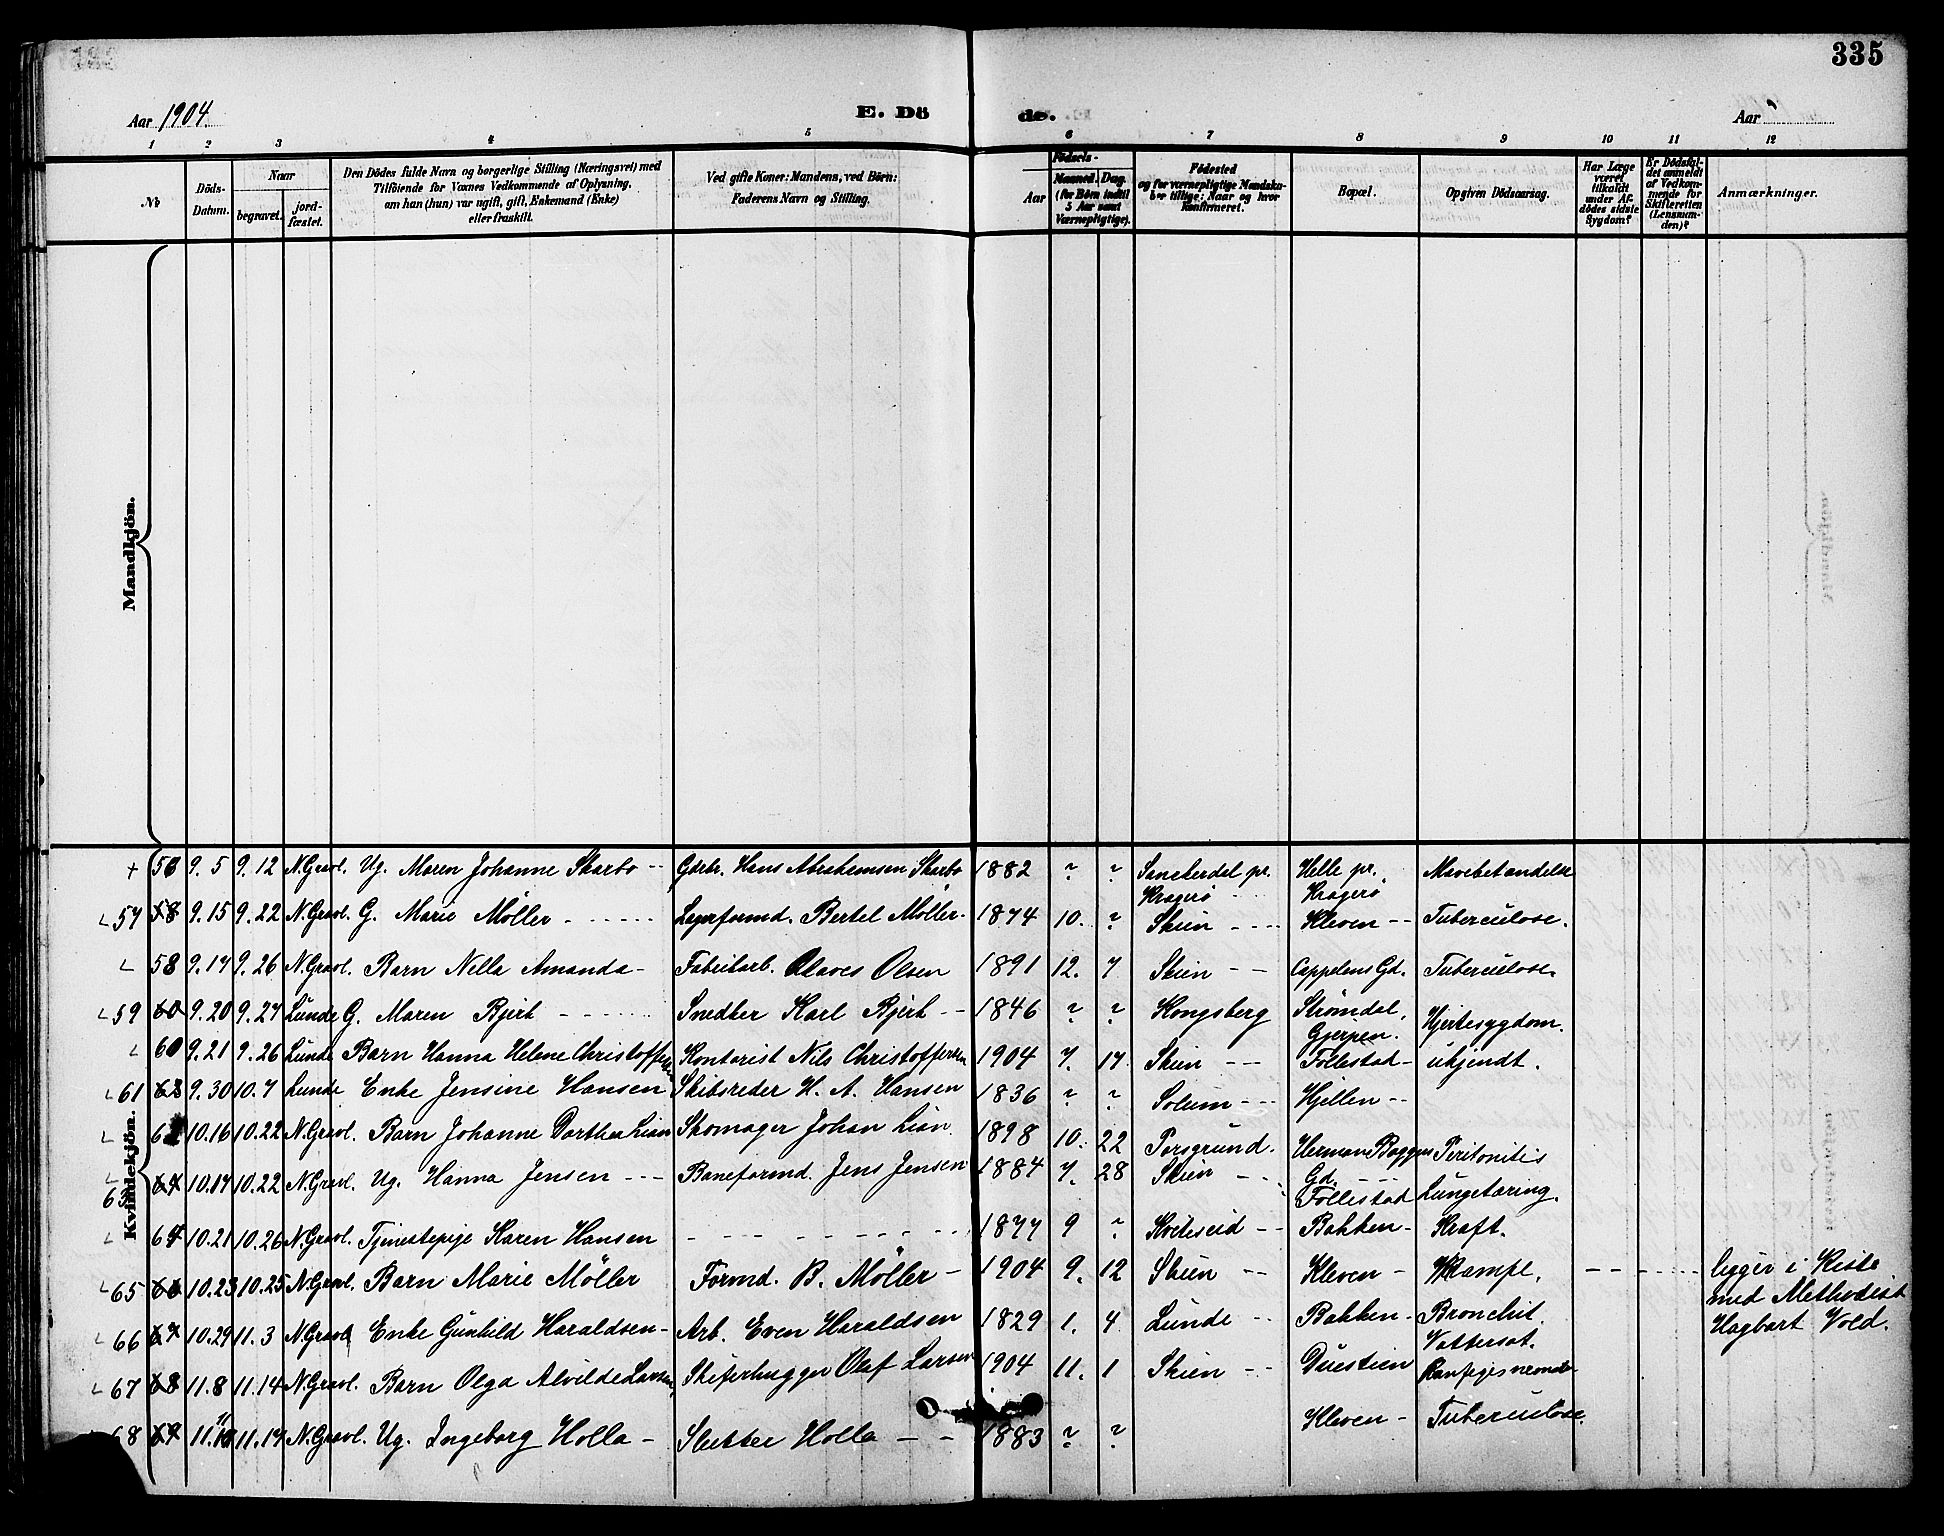 335
Aar 1904.
E. Döde.
Aar
1 2 3 4 5 6 7 8 9 10 11 12
No
Döds-Datum.
Naar
begravet.
jord-fæstet.
Den Dödes fulde Navn og borgerlige Stilling (Næringsvei) med
Tilföiende for Voxnes Vedkommende af Oplysning,
om han (hun) var ugift, gift, Enkemand (Enke)
eller fraskilt.
Ved gifte Koner: Mandens, ved Börn:
Faderens Navn og Stilling.
Födsels-
Aar
Maaned. Dag.
(for Börn indtil
5 Aar samt
Værnepligtige).
Födested
og for værnepligtige Mandska-
ber tillige: Naar og hvor
konfirmeret.
Bopæl.
Opgiven Dödsaarsag.
Har Læge
været
tilkaldt
under Af-
dödes sidste
Sygdom?
Er Dödsfal-
det anmeldt
af Vedkom-
mende for
Skifteretten
(Lensman-
den)?
Anmærkninger.
Mandkjön.
Kvindekjön.
56 9.5 9.12 N.Gravl. Ug. Maren Johanne Skarbo Gdrbr. Hans Abrahamsen Skarbo 1882 ? ? Sannkerdal pr. Kragerø Helle pr. Kragerø Mavebetændelse
57 58 9.15 9.22 N.Gravl. G. Marie Möller Lagerformd. Bertel Möller 1874 10. ? Skien Kleven Tuberculose.
58 9.17 9.26 N.Gravl. Barn Nella Amanda Fabrikarb. Olaves Olsen 1891 12. 7 Skien Cappelens Gd. Tuberculose
59 60 9.20 9.27 Lunde G. Maren Bjerk Snedker Karl Bjerk 1846 ? ? Kongsberg Strømdal, Gjerpen. Hjertesygdom.
60 9.21 9.26 Lunde Barn Hanna Helene Christoffersen Kontorist Nils Christoffersen 1904 7. 17 Skien Follestad ukjendt.
61 63 9.30 10.7 Lunde Enke Jensine Hansen Skibsreder H. A. Hansen 1836 ? ? Solum Hjellen
62 10.16 10.22 N.Gravl. Barn Johanne Dorthea Lian Skomager Johan Lian 1898 10. 22 Porsgrund. Herman Bagges Gd. Peritonitis
63 64 10.17 10.22 N.Gravl. Ug. Hanna Jensen Baneformd. Jens Jensen 1884 7. 28 Skien Follestad Lungetæring.
64 10.21 10.26 N.Gravl. Tjenestepige Karen Hansen 1877 9 ? Kviteseid Bakken Kræft.
65 66 10.23 10.25 N.Gravl. Barn Marie Möller Formd. B. Möller 1904 9. 12 Skien Kleven Krampe. ligger i Kiste
med Methodist
Hagbart Vold.
66 67 10.29 11.3 N.Gravl Enke Gunhild Haraldsen Arb. Even Haraldsen 1829 1. 4 Lunde Bakken Bronchit. Vattersot.
67 68 11.8 11.14 N.Gravl. Barn Olga Alvilde Larsen Skiferhugger Olaf Larsen 1904 11. 1 Skien Duestien
68 69 11. 11.17 N.Gravl. Ug. Ingeborg Holla Slutter Holla 1883 ? ? Kleven Tuberculose.